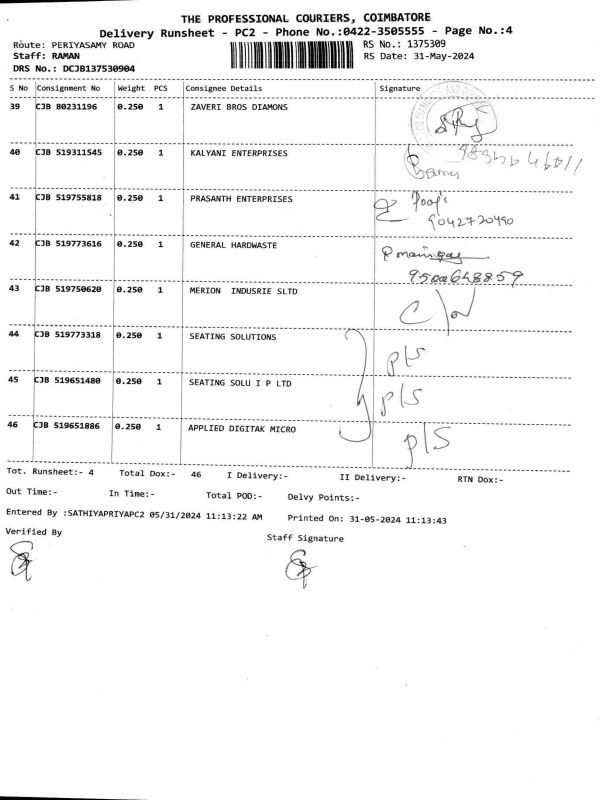 THE PROFESSIONAL COURIERS, COIMBATORE
Delivery Runsheet - PC2 - Phone No.:0422-3505555 - Page No.:4
Route: PERIYASAMY ROAD RS No.: 1375309
Staff: RAMAN RS Date: 31-May-2024
DRS No.: DCJB137530904
S No Consignment No Weight PCS Consignee Details Signature
39 CJB 80231196 0.250 1 ZAVERI BROS DIAMONS
40 CJB 519311545 0.250 1 KALYANI ENTERPRISES
41 CJB 519755818 0.250 1 PRASANTH ENTERPRISES
9042720490
42 CJB 519773616 0.250 1 GENERAL HARDWASTE
43 CJB 519750620 0.250 1 MERION INDUSRIE SLTD
44 CJB 519773318 0.250 1 SEATING SOLUTIONS
P/S
45 CJB 519651480 0.250 1 SEATING SOLU I P LTD
P/S
46 CJB 519651886 0.250 1 APPLIED DIGITAK MICRO
P/S
Tot. Runsheet:- 4 Total Dox:- 46 I Delivery:- II Delivery:- RTN Dox:-
Out Time:- In Time:- Total POD:- Delvy Points:-
Entered By :SATHIYAPRIYAPC2 05/31/2024 11:13:22 AM Printed On: 31-05-2024 11:13:43
Verified By Staff Signature